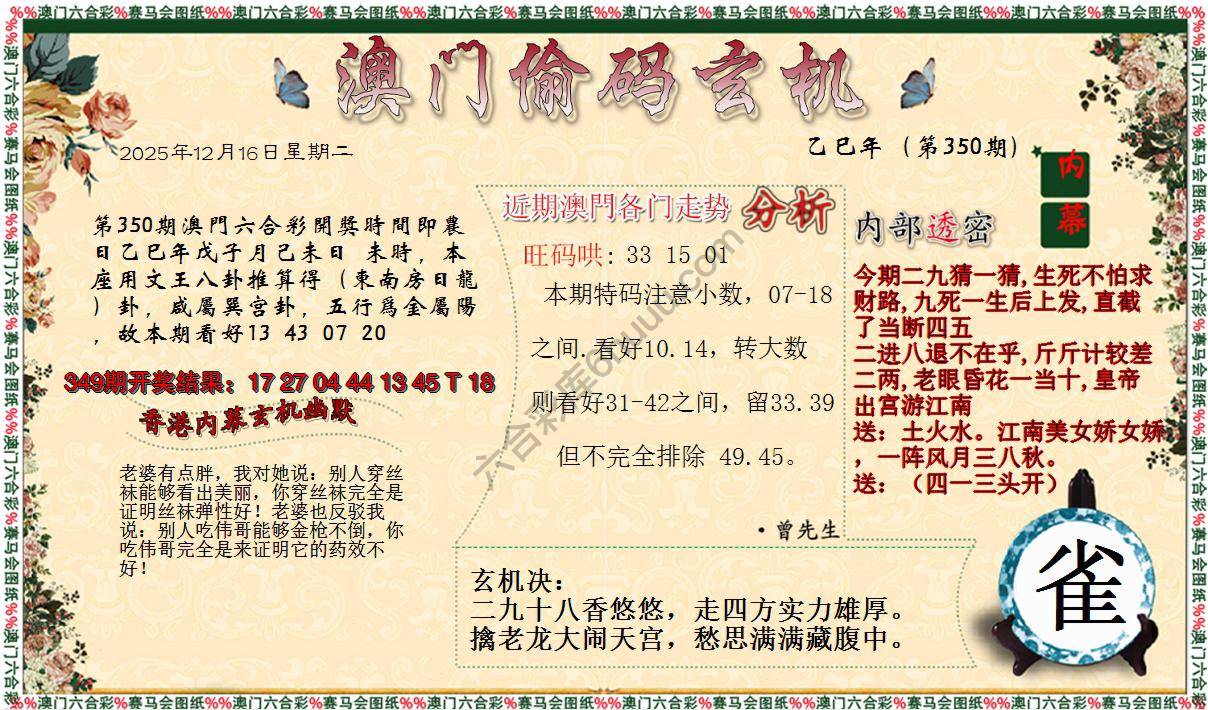 %%澳门六合彩%赛马会图纸%%澳门六合彩%赛马会图纸%%澳门六合彩%赛马会图纸%%澳门六合彩%赛马会图纸%%澳门六合彩%赛马会图纸%%澳门六合彩%赛马会图纸%%
澳门偷码玄机
2025年12月16日星期二
乙巳年（第350期）
内幕
第350期澳門六合彩開獎時間即農
日乙巳年戊子月己未日 未時，本
座用文王八卦推算得（東南房日龍
）卦，咸屬巽宫卦，五行爲金屬陽
，故本期看好13 43 07 20
349期开奖结果：17 27 04 44 13 45 T 18
香港内幕玄机幽默
老婆有点胖，我对她说：别人穿丝
袜能够看出美丽，你穿丝袜完全是
证明丝袜弹性好！老婆也反驳我
说：别人吃伟哥能够金枪不倒，你
吃伟哥完全是来证明它的药效不
好！
近期澳門各门走势 分析
旺码哄：33 15 01
本期特码注意小数，07-18
之间.看好10.14，转大数
则看好31-42之间，留33.39
但不完全排除 49.45。
·曾先生
内部透密
今期二九猜一猜,生死不怕求
财路,九死一生后上发,直截
了当断四五
二进八退不在乎,斤斤计较差
二两,老眼昏花一当十,皇帝
出宫游江南
送：土火水。江南美女娇女娇
，一阵风月三八秋。
送：（四一三头开）
玄机决：
二九十八香悠悠，走四方实力雄厚。
擒老龙大闹天宫，愁思满满藏腹中。
雀
%%澳门六合彩%赛马会图纸%%澳门六合彩%赛马会图纸%%澳门六合彩%赛马会图纸%%澳门六合彩%赛马会图纸%%澳门六合彩%赛马会图纸%%澳门六合彩%赛马会图纸%%